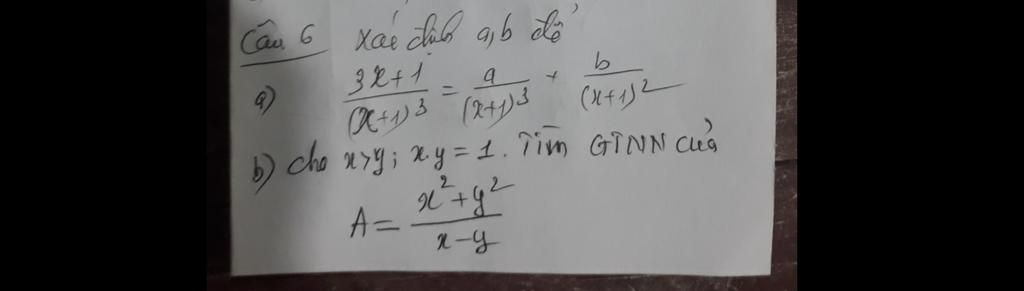 Câu 6 xác định a,b để
a) \frac{3x+1}{(x+1)^3} = \frac{a}{(x+1)^3} + \frac{b}{(x+1)^2}
b) cho x>y; x.y = 1. Tìm GTNN của
A = \frac{x^2+y^2}{x-y}